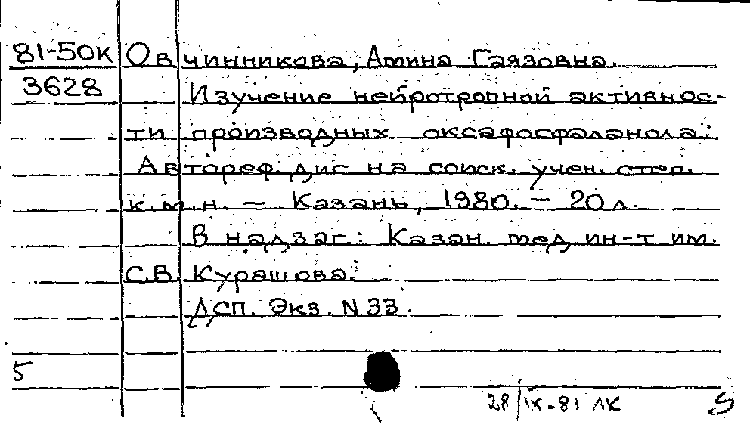 81-50к Овчинникова, Амина Гаязовна.
3628 Изучение нейротропной активнос-
ти производных оксафосфаланола:
Автореф. дис на соиск. учен. степ.
к.м.н. – Казань, 1980. – 20 л.
В надзаг.: Казан. мед. ин-т им.
С.В. Курашова.
ДСП. Экз. N 33.
5
28/IX-81 ЛК